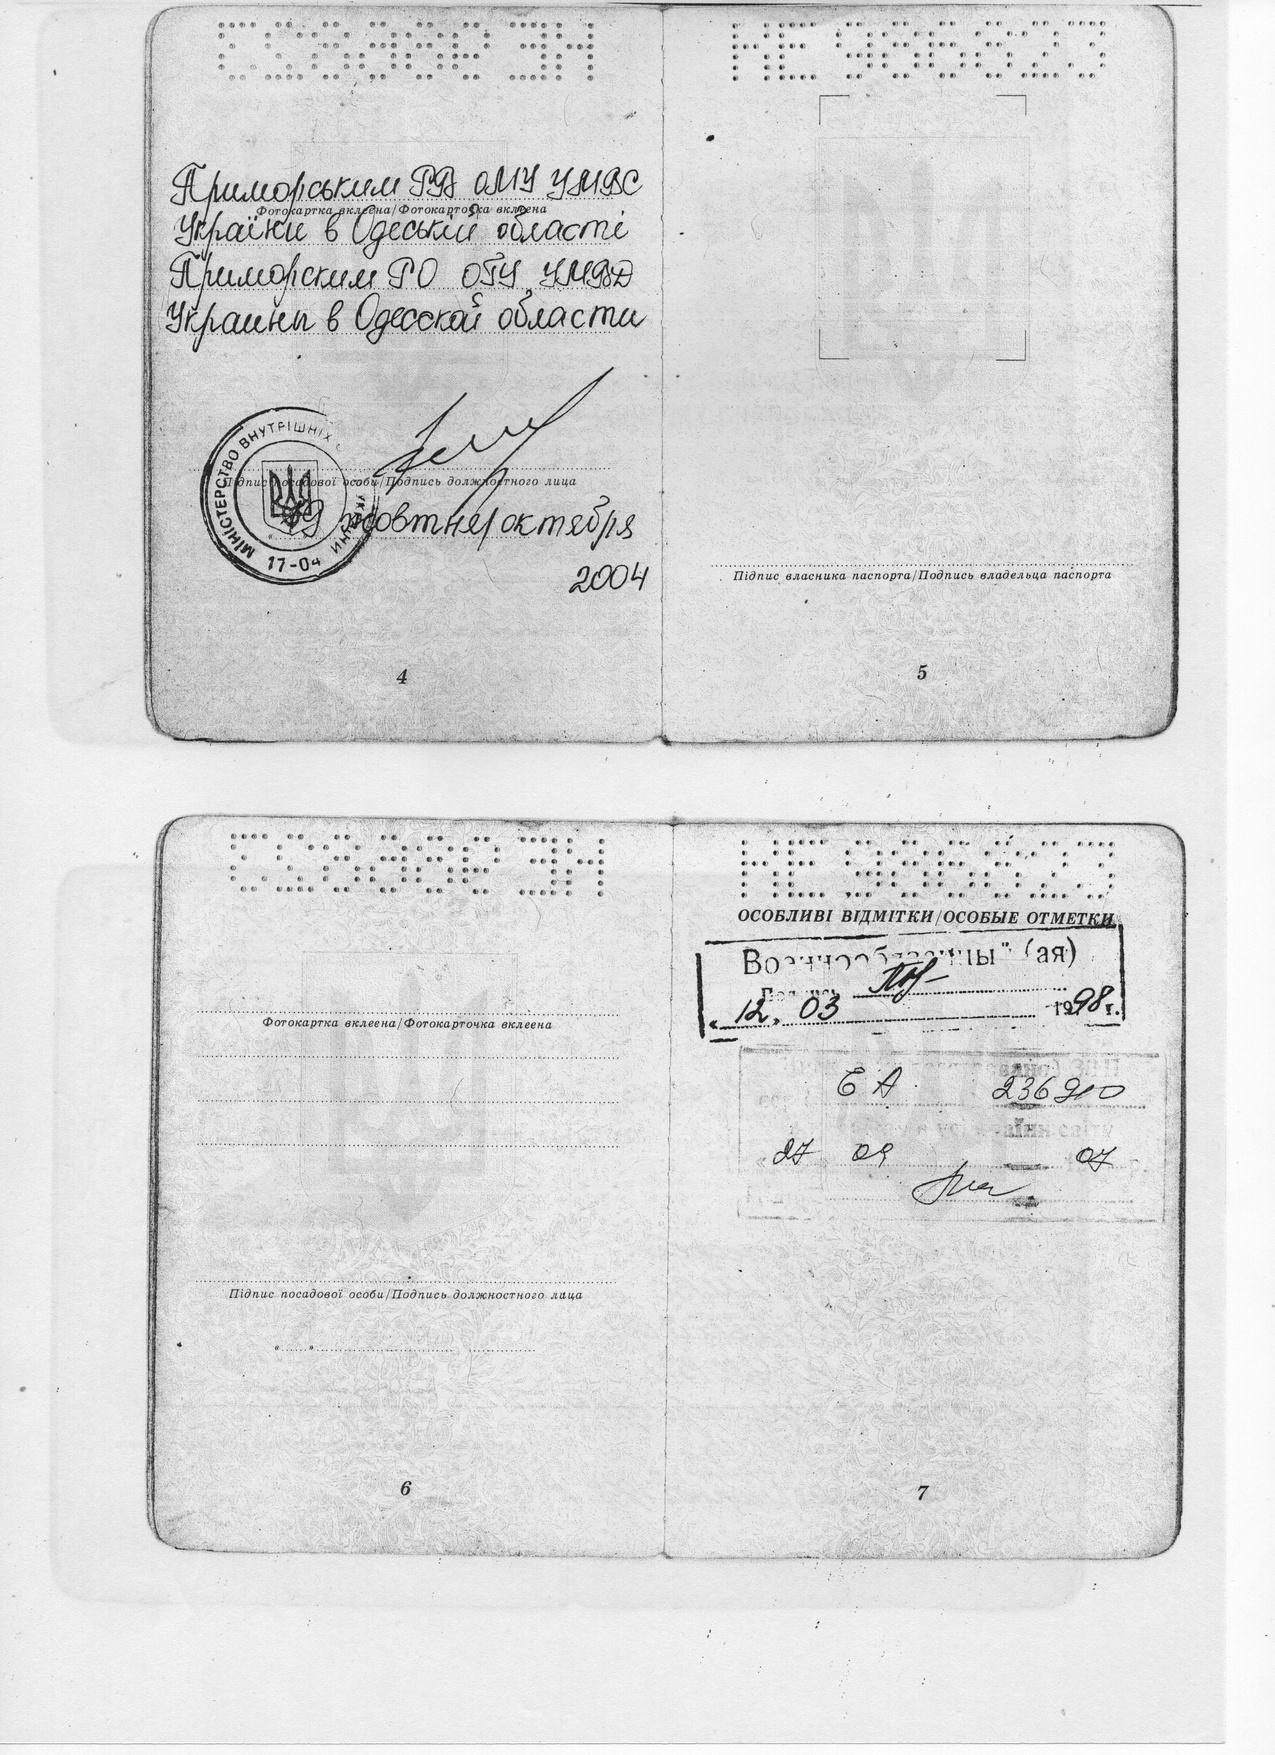 НЕ 986823
Приморським РВ ОМУ УМВС
Фотокартка вклеена/Фотокарточка вклеена
України в Одеській області
Приморским РО ОГУ УМВД
Украины в Одесской области
МІНІСТЕРСТВО ВНУТРІШНІХ
УКРАЇНИ
17-04
Підпис посадової особи/Подпись должностного лица
жовтня/октября
2004
4
Підпис власника паспорта/Подпись владельца паспорта
5
Фотокартка вклеена/Фотокарточка вклеена
Підпис посадової особи/Подпись должностного лица
6
ОСОБЛИВІ ВІДМІТКИ/ОСОБЫЕ ОТМЕТКИ
Военнообязанный (ая)
Подпись
« 12 » 03 1998 г.
ЕА 236910
27 09 07
7